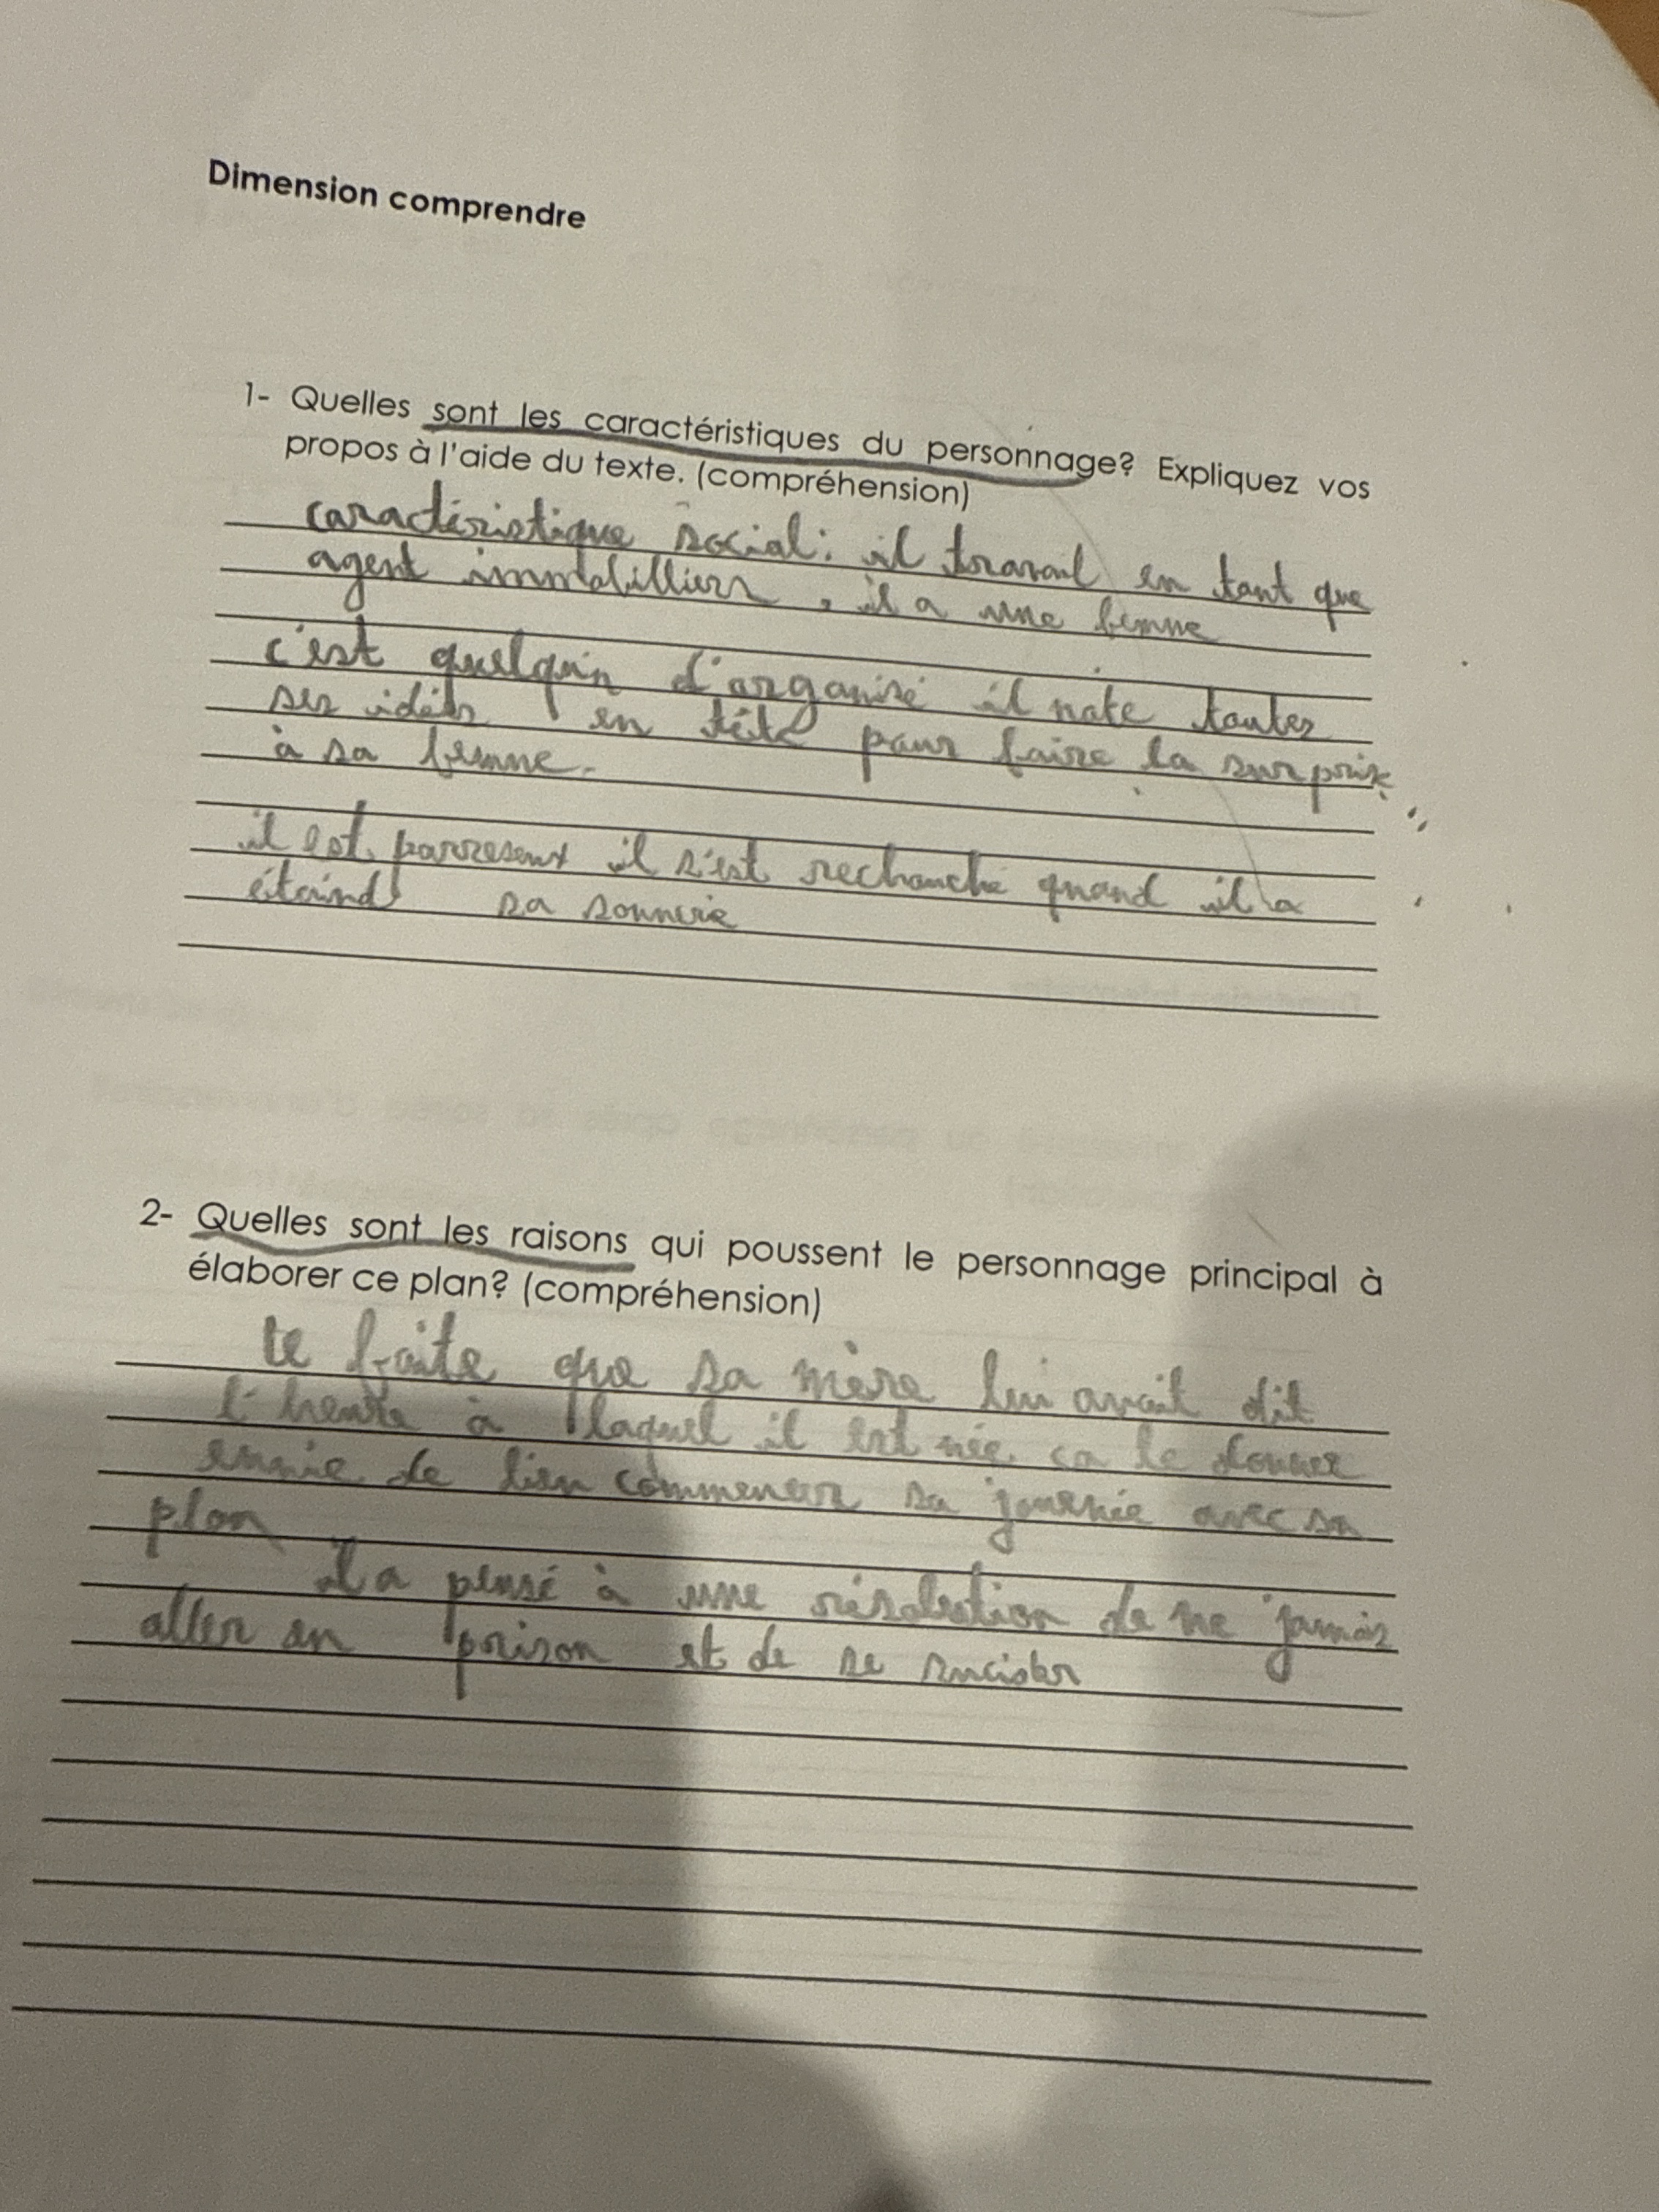 Dimension comprendre
1- Quelles sont les caractéristiques du personnage? Expliquez vos
propos à l'aide du texte. (compréhension)
caractéristique social: il travail en tant que
agent immobillier, il a une femme
c'est quelqu'n d'organisé il note toutes
ses idées en tête pour faire la surprise
à sa femme.
il est parreseux il s'est rechouché quand il a
étaind sa sonnerie
2- Quelles sont les raisons qui poussent le personnage principal à
élaborer ce plan? (compréhension)
le faite que sa mère lui avait dit
l'heure à laquel il est née ca le donner
envie de bien commencer sa journée avec sa
plan
il a pensé à une résolution de ne jamais
aller en prison et de se